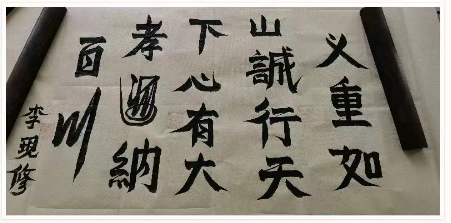 义重如
山誠行天
下心有大
孝納
百川
李現修